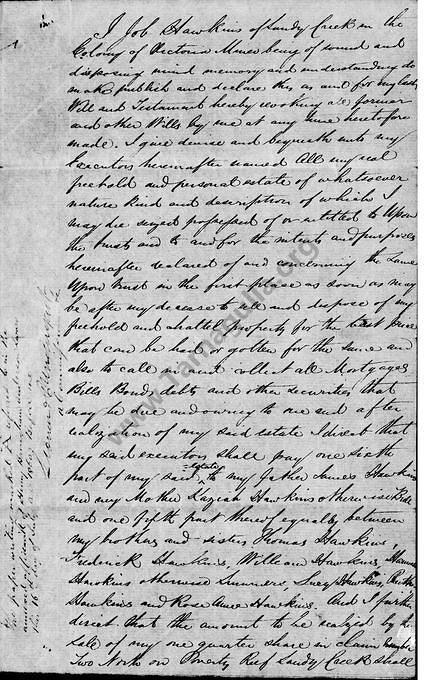 I Job Hawkins of Sandy Creek in the
Colony of Victoria Miner being of sound and
disposing mind memory and understanding do
make publish and declare this as and for my last
Will and Testament hereby revoking all former
and other Wills by me at any time heretofore
made. I give devise and bequeath unto my
Executors hereinafter named All my real
freehold and personal estate of whatsoever
nature kind and description of which I
may die seized possessed of or entitled to Upon
the trusts and to and for the intents and purposes
hereinafter declared of and concerning the same
Upon trust in the first place as soon as may
be after my decease to sell and dispose of my
freehold and chattel property for the best price
that can be had or gotten for the same and
also to call in and collect all Mortgages
Bills Bonds debts and other securities that
may be due and owing to me and after
realization of my said estate I direct that
my said executors shall pay one sixth
part of my said estate to my Father James Hawkins
and my Mother Hawkins otherwise
and one fifth part thereof equally between
my brothers and sisters Thomas Hawkins,
Frederick Hawkins, William Hawkins, Hannah
Hawkins otherwise Summers, Lucy Hawkins,
Hawkins and Rose Hawkins. And I further
direct that the amount to be realized by the
sale of my one quarter share in Claim Number
Two North on Poverty Reef Sandy Creek shall
This paper writing marked A referred to in the
www.hamagulia.org